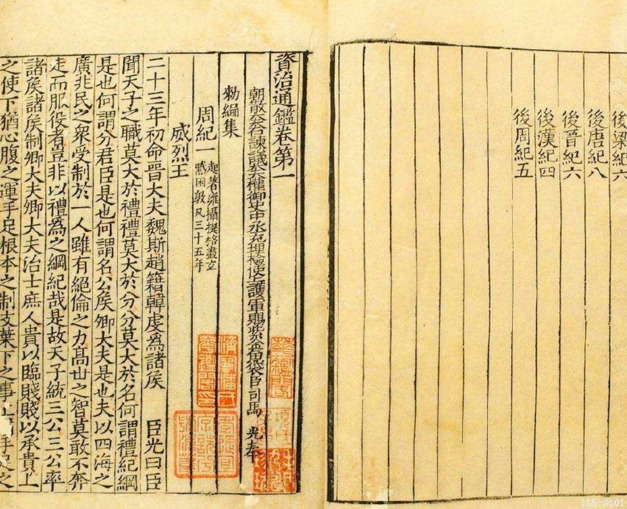 後梁紀六
後唐紀八
後晉紀六
後漢紀四
後周紀五
資治通鑑卷第一
朝散大夫右諫議大夫權御史中丞充理檢使上護軍賜紫金魚袋臣司馬 光奉
勑編集
周紀一 起著雍攝提格盡玄
黓困敦凡三十五年
威烈王
二十三年初命晉大夫魏斯趙籍韓虔為諸侯 臣光曰臣
聞天子之職莫大於禮禮莫大於分分莫大於名何謂禮紀綱
是也何謂分君臣是也何謂名公侯卿大夫是也夫以四海之
廣兆民之衆受制於一人雖有絕倫之力高世之智莫敢不奔
走而服役者豈非以禮為之綱紀哉是故天子統三公三公率
諸侯諸侯制卿大夫卿大夫治士庶人貴以臨賤賤以承貴上
之使下猶心腹之運手足根本之制支葉下之事上手足之